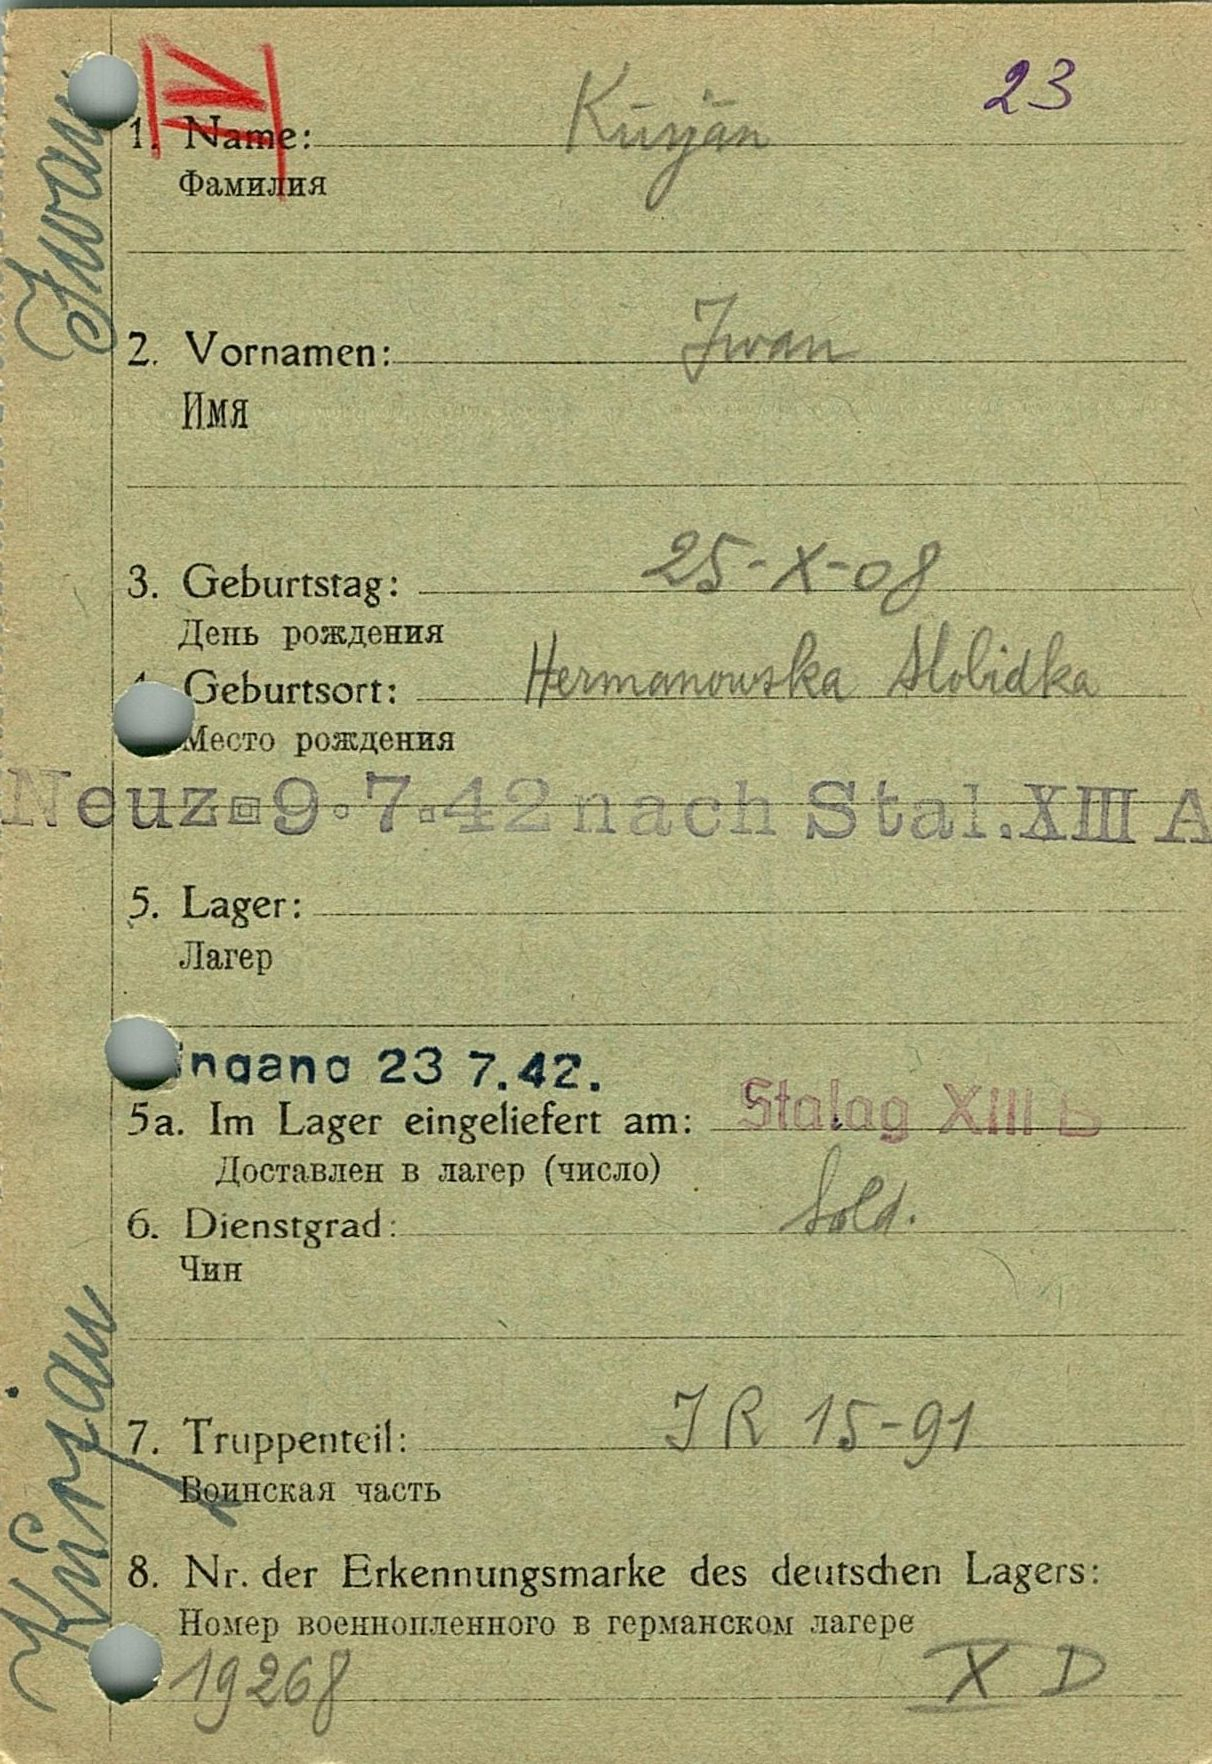 IV
23
1. Name: Kurjan
Фамилия
2. Vornamen: Iwan
Имя
3. Geburtstag: 25-X-08
День рождения
Geburtsort: Hermanowska Slobidka
Место рождения
Neuz 9.7.42 nach Stal. XIII A
5. Lager:
Лагер
ingang 23 7.42.
5a. Im Lager eingeliefert am: Stalag XIII
Доставлен в лагер (число)
6. Dienstgrad: Sold.
Чин
7. Truppenteil: IR 15-91
Воинская часть
8. Nr. der Erkennungsmarke des deutschen Lagers:
Номер военнопленного в германском лагере
19268 X D
Kurjan Iwan